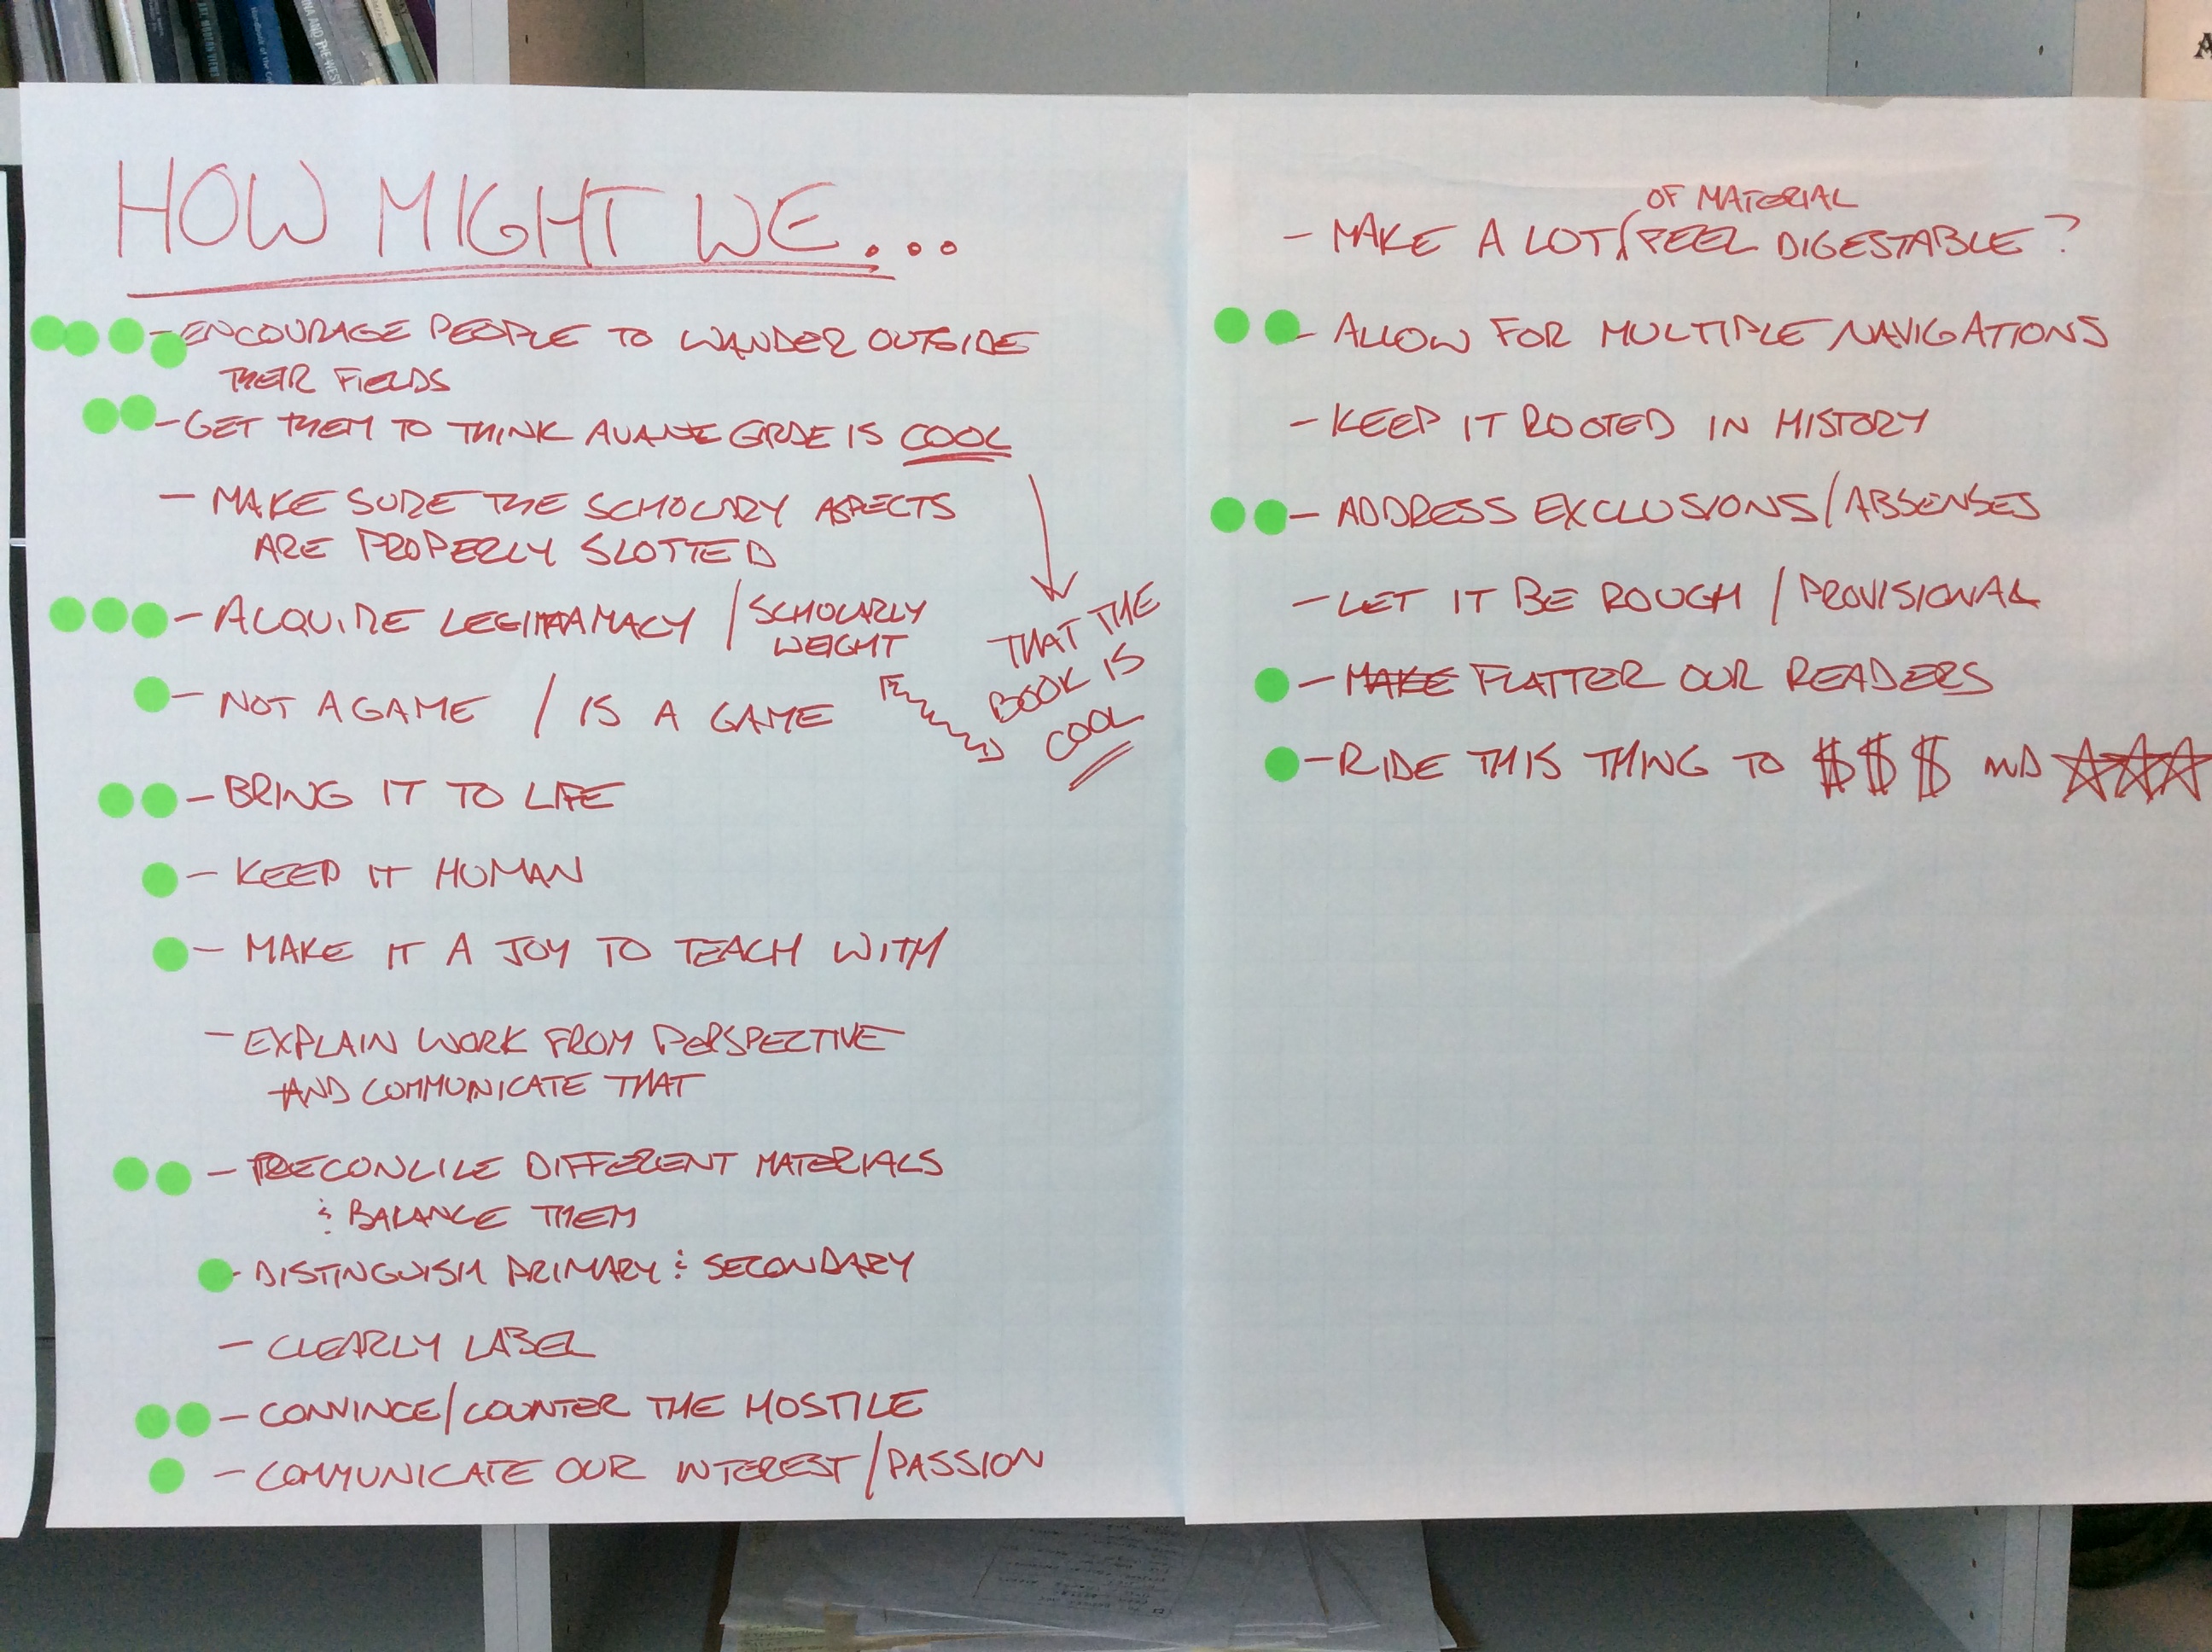 HOW MIGHT WE...
- ENCOURAGE PEOPLE TO WANDER OUTSIDE
THEIR FIELDS
- GET THEM TO THINK AVANT GRDE IS COOL
THAT THE
BOOK IS
COOL
- MAKE SURE THE SCHOLARY ASPECTS
ARE PROPERLY SLOTTED
- ACQUIRE LEGITAMACY / SCHOLARLY
WEIGHT
- NOT A GAME / IS A GAME
- BRING IT TO LIFE
- KEEP IT HUMAN
- MAKE IT A JOY TO TEACH WITH
- EXPLAIN WORK FROM PERSPECTIVE
AND COMMUNICATE THAT
- RECONCILE DIFFERENT MATERIALS
& BALANCE THEM
- DISTINGUISH PRIMARY & SECONDARY
- CLEARLY LABEL
- CONVINCE/COUNTER THE HOSTILE
- COMMUNICATE OUR INTEREST/PASSION
OF MATERIAL
- MAKE A LOT FEEL DIGESTABLE?
- ALLOW FOR MULTIPLE NAVIGATIONS
- KEEP IT ROOTED IN HISTORY
- ADDRESS EXCLUSIONS/ABSENSES
- LET IT BE ROUGH / PROVISIONAL
- MAKE FLATTER OUR READERS
- RIDE THIS THING TO $$$ AND ☆☆☆